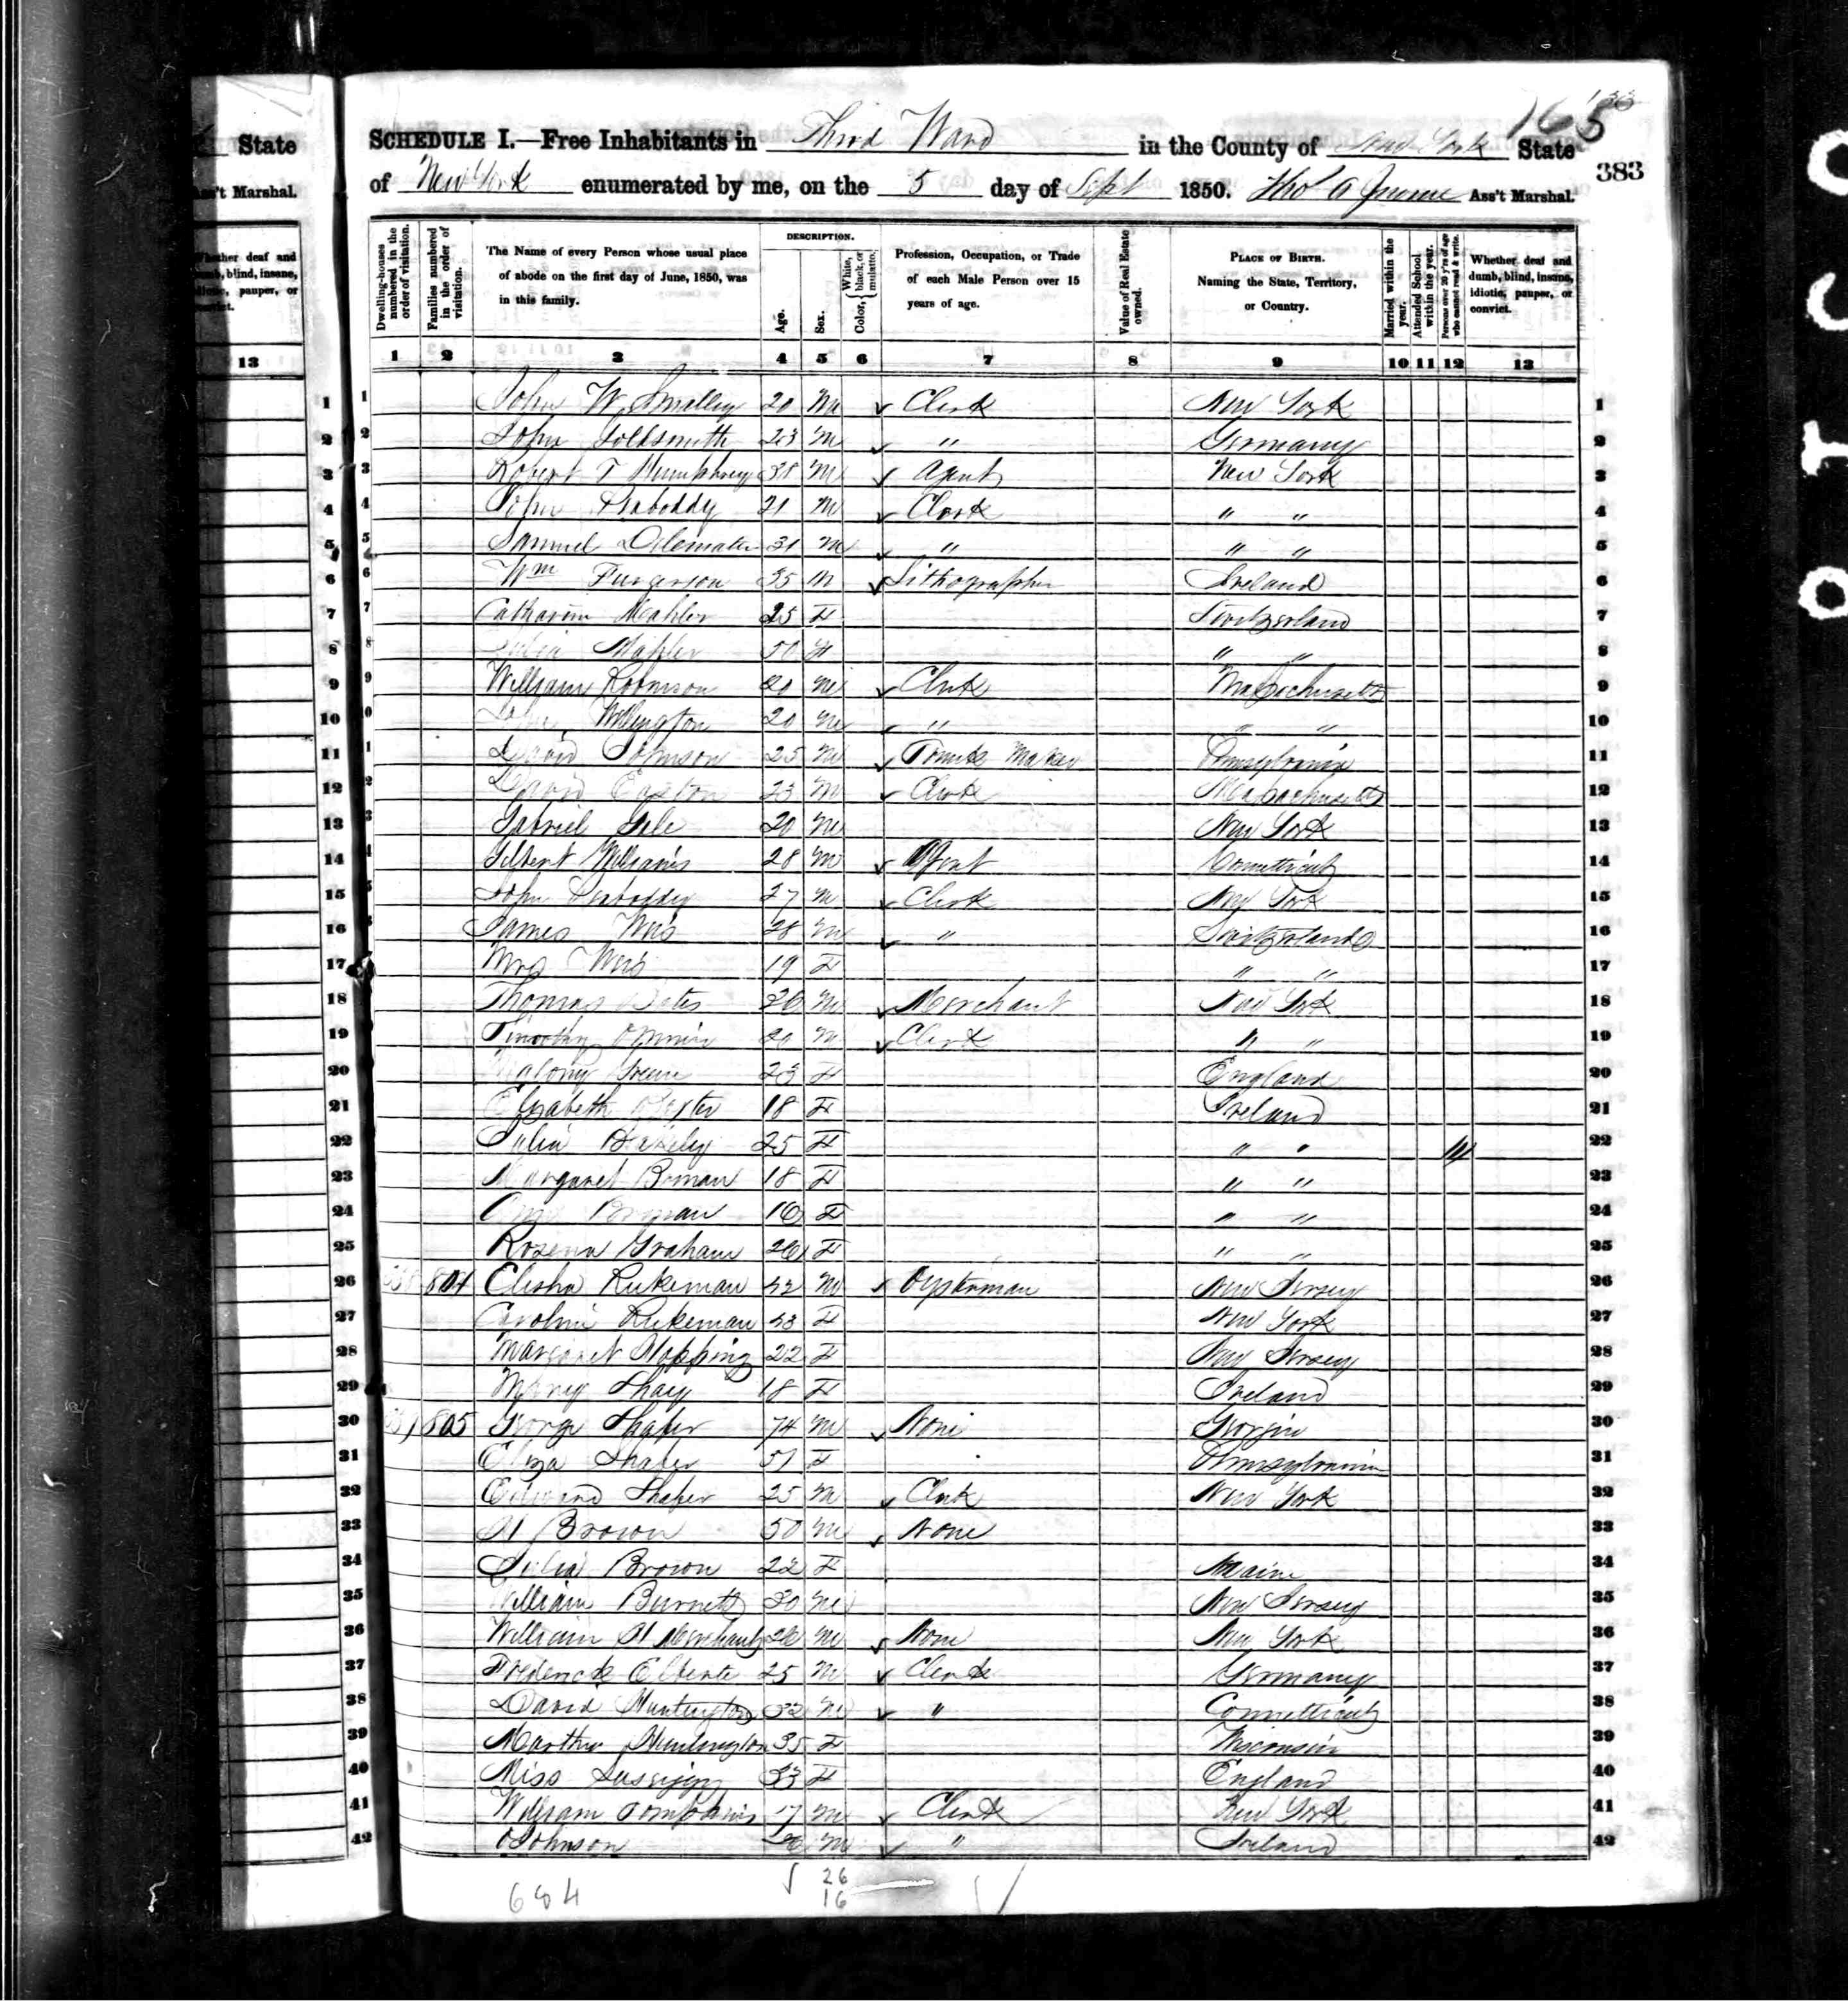 State
Ass't Marshal.
Whether deaf and
dumb, blind, insane,
idiotic, pauper, or
convict.
13
165
383
SCHEDULE I.—Free Inhabitants in Third Ward in the County of New York State
of New York enumerated by me, on the 5 day of Sept 1850. Ass't Marshal.
Dwelling-houses numbered in the order of visitation.
Families numbered in the order of visitation.
The Name of every Person whose usual place of abode on the first day of June, 1850, was in this family.
DESCRIPTION.
Age.
Sex.
Color, White, black, or mulatto.
Profession, Occupation, or Trade of each Male Person over 15 years of age.
Value of Real Estate owned.
PLACE OF BIRTH. Naming the State, Territory, or Country.
Married within the year.
Attended School within the year.
Persons over 20 y'rs of age who cannot read & write.
Whether deaf and dumb, blind, insane, idiotic, pauper, or convict.
1 2 3 4 5 6 7 8 9 10 11 12 13
1 John W Smalley 20 M Clerk New York 1
2 John Goldsmith 23 M " Germany 2
3 Robert T Humphrey 38 M Agent New York 3
4 John Peaboddy 21 M Clerk " " 4
5 Samuel Delemater 31 M " " " 5
6 Wm Furgerson 35 M Lithographer Ireland 6
7 Catharine Mahler 25 F Switzerland 7
8 Julia Mahler 50 " " 8
9 William Robinson 20 M Clerk Massachusetts 9
10 John Willington 20 M " " " 10
11 David Johnson 25 M Trunk Maker Pennsylvania 11
12 David Easton 23 M Clerk Massachusetts 12
13 Gabriel Gale 20 M New York 13
14 Gilbert Williams 28 M Agent Connetticut 14
15 John Peaboddy 27 M Clerk New York 15
16 James 28 M " Switzerland 16
17 Mrs 19 F " " 17
18 Thomas 26 M Merchant New York 18
19 Timothy 20 M Clerk " " 19
20 Green 23 F England 20
21 Elizabeth 18 F Ireland 21
22 Julia 25 F " " 22
23 Margaret 18 F " " 23
24 16 F " " 24
25 Rosena Graham 26 F " " 25
26 804 Elisha Rukeman 42 M Oysterman New Jersey 26
27 Caroline Rukeman 43 F New York 27
28 Margaret Stopping 22 F New Jersey 28
29 Mary Shay 18 F Ireland 29
30 805 George Shafer 74 M None Georgia 30
31 Eliza Shafer 51 F Pennsylvania 31
32 Edward Shafer 25 M Clerk New York 32
33 H Brown 50 M None 33
34 Julia Brown 22 F Maine 34
35 William Burnett 30 M New Jersey 35
36 William H Merchant 26 M None New York 36
37 Frederick 25 M Clerk Germany 37
38 David Huntington 32 M " Connetticut 38
39 Martha Huntington 35 F Wisconsin 39
40 Miss 33 F England 40
41 William Tompkins 17 M Clerk New York 41
42 Johnson 26 M " Ireland 42
684
26
16